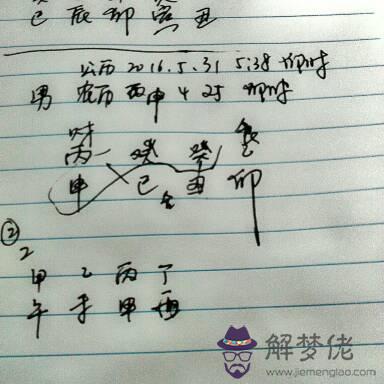 巳 辰 卯 寅 丑
公历 2016.5.31 5:38 卯时
男 农历 丙申 4 25 卯时
财
丙 癸 癸
申 巳 丑 卯
②
2
甲 乙 丙 丁
午 申 酉
解梦佬
www.jiemenglao.com